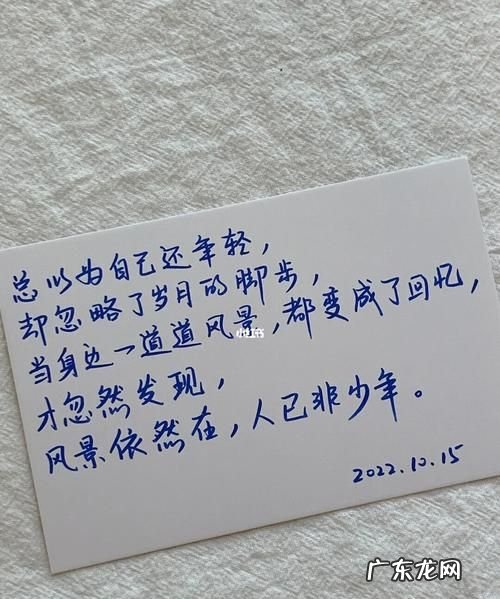 总以为自己还年轻，
却忽略了岁月的脚步，
当身边一道道风景，都变成了回忆，
才忽然发现，
风景依然在，人已非少年。
2022.10.15
小红书
广东龙网